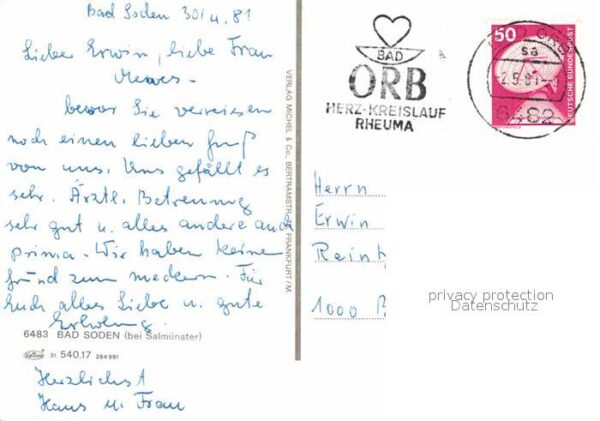 Bad Soden 30/4. 81
Liebe Erwin, liebe Frau
Mewes -
bevor Sie verreisen
noch einen lieben Gruß
von uns. Uns gefällt es
sehr. Ärztl. Betreuung
sehr gut u. alles andere auch
prima. Wir haben keinen
Grund zum meckern. Für
Euch alles Liebe u. gute
Erholung.
6483 BAD SODEN (bei Salmünster)
31 540.17 264 991
Herzlichst
Hans u. Frau
VERLAG MICHEL & Co., BERTRAMSTR. FRANKFURT/M.
BAD
ORB
HERZ-KREISLAUF
RHEUMA
50
DEUTSCHE BUNDESPOST
BAD ORB
sa
-2.5.81-
6482
Herrn
Erwin
Rein
1000
privacy protection
Datenschutz